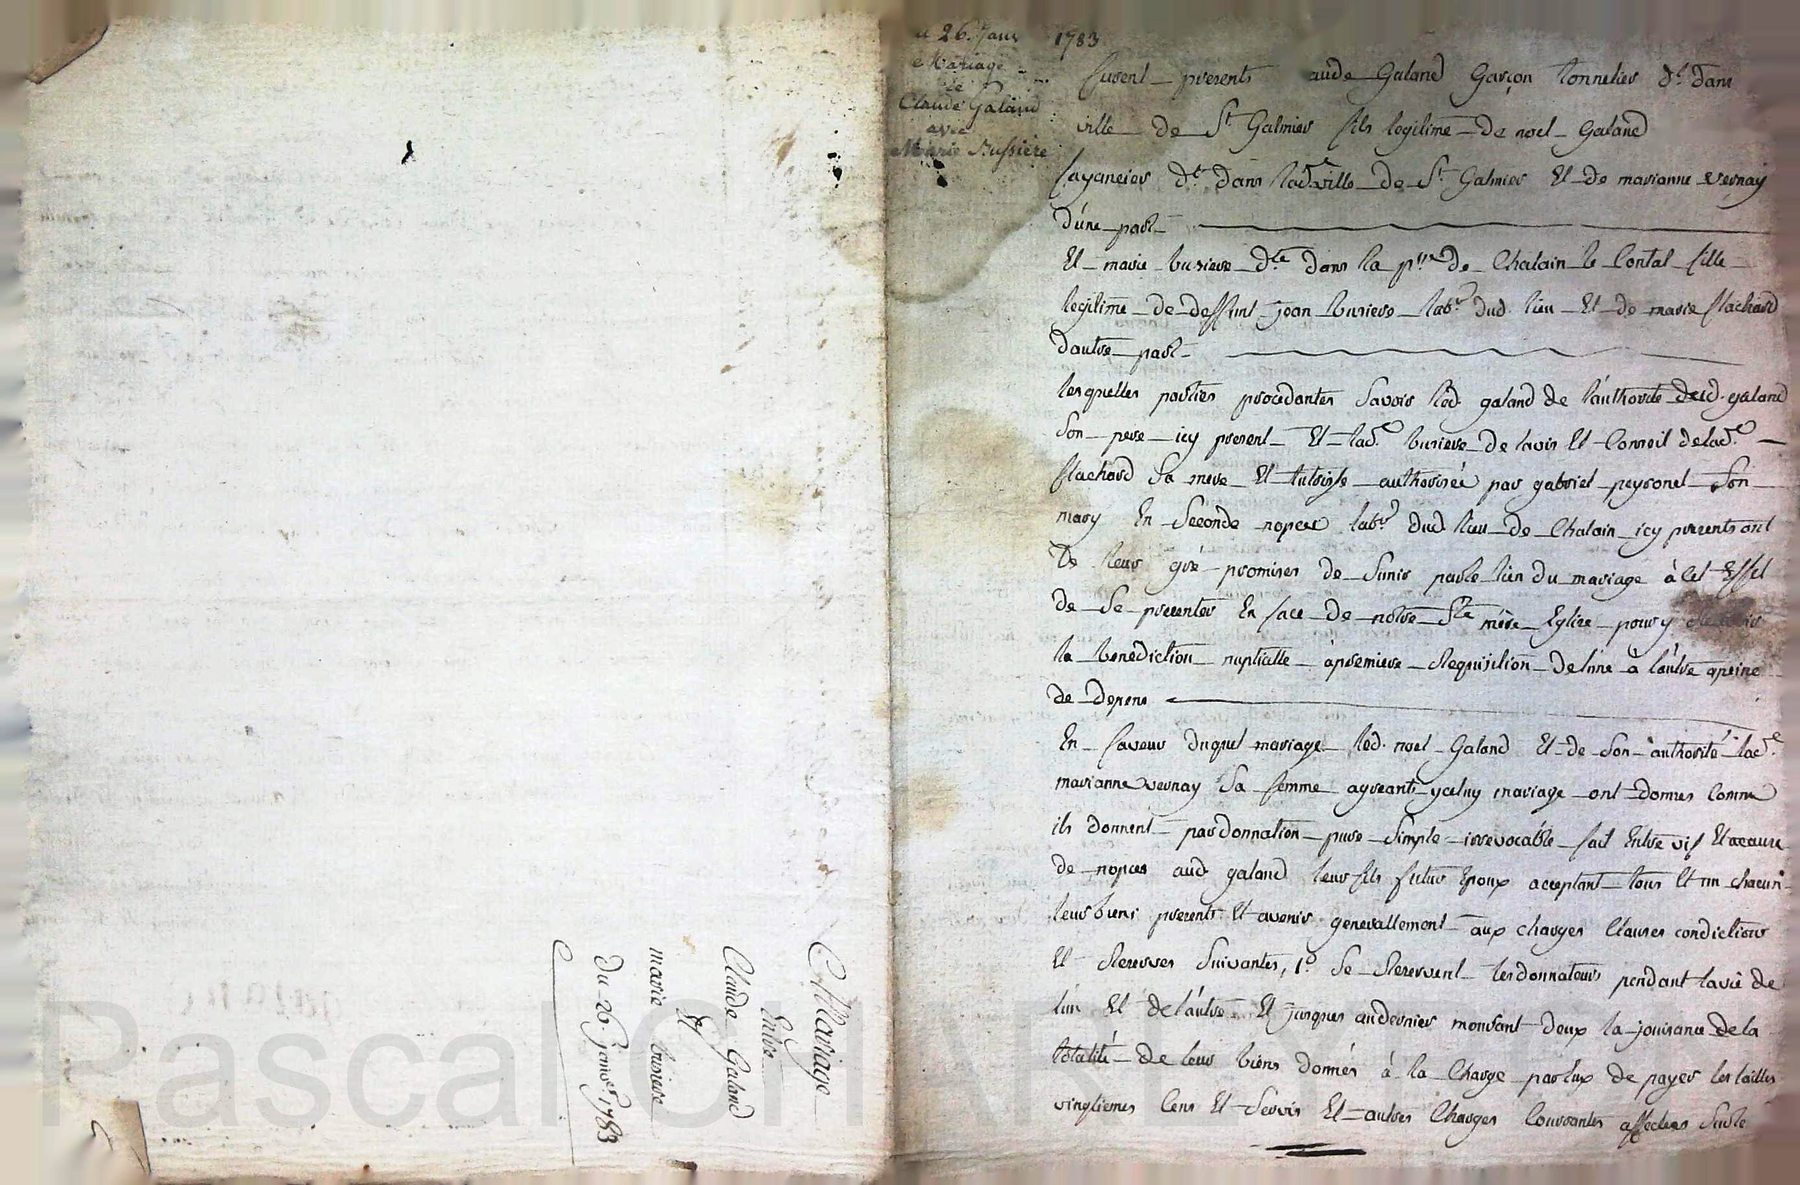 C. Mariage
Entre
Claude Galand
Et
marie buriere
Du 26 janvr 1783
26. Janv 1783
Mariage
de
Claude Galand
avec
Marie Bussiere
furent presents aude Galand Garçon tonnelier dt dans
ville de St Galmier fils legitime de noel Galand
dt dans ladte ville de St Galmier Et de marianne vernay
d'une part
Et marie buriere dte dans la psse de Chalain le Contal fille
legitime de deffunt jean buriere labr dud. lieu Et de marie flachard
dautre part
lesquelles parties procedantes Savoir led. galand de l'authorité dud. galand
Son pere icy present Et lade buriere de lavis Et Conseil delade
flachard Sa mere Et tutrisse authorisée par gabriel peyronel Son
mary En Seconde nopces labr dud lieu de Chalain icy presents ont
De leur gré promises de Sunir parle lien du mariage à Cet Effet
de Se presenter En face de notre Ste mere Eglize pour y
la benediction nuptialle àpremiere Requisition delune à lautre apeine
de depens
En faveur duquel mariage led. noel Galand Et de Son authorité lade
marianne vernay Sa femme agreants ycelluy mariage ont donnés Comme
ils donnent pardonnation pure Simple irrevocable fait Entre vif Et acause
de nopces aud galand leur fils futur Epoux acceptant tous Et un chacun
leurs biens presents Et avenir generallement aux charges Clauses condictions
Et Reserves Suivantes, 1° Se Reservent lesdonnateurs pendant lavie de
lun Et de lautre Et jusques audernier mourant deux la jouisance de la
totalité de leur biens donnés à la Charge pareux de payer les tailles
vingtiemes Cens Et Servis Et autres Charges Courrantes affectées Surle
Pascal CHA